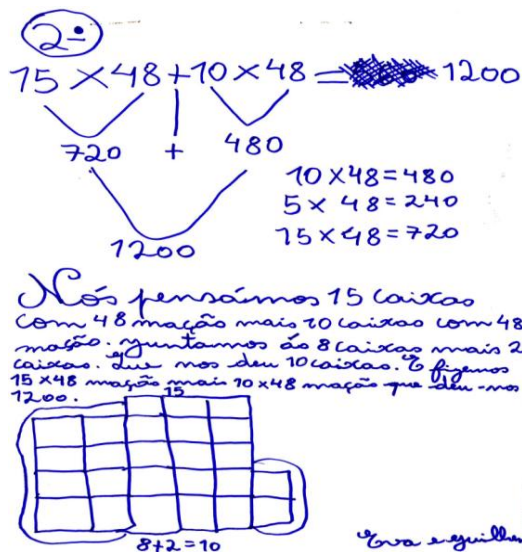 2º
15 × 48 + 10 × 48 = 1200
720 + 480
10 × 48 = 480
5 × 48 = 240
1200
15 × 48 = 720
Nós pensámos 15 caixas
com 48 mação mais 10 caixas com 48
mação. Juntamos ás 8 caixas mais 2
caixas. Que nos deu 10 caixas. E fizemos
15 × 48 mação mais 10 × 48 mação que deu-nos
1200.
15
8 + 2 = 10
Eva e